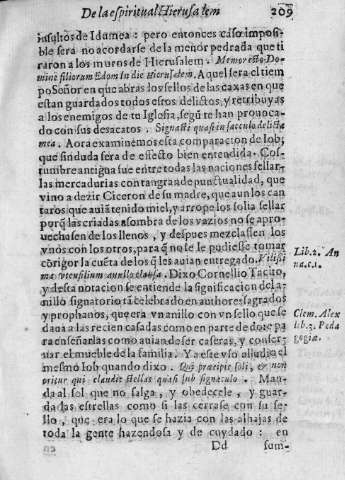 De la espiritual Hierusalem 209
insultos de Idumea: pero entonces caso imposi-
ble sera no acordarse de la menor pedrada que ti
raron a los muros de Hierusalem. Memor esto Do-
mine filiorum Edom In die Hierusalem. Aquel sera el tiem
po Señor en que abras los sellos de las caxas en que
estan guardados todos esros delictos, y retribuyas
a los enemigos de tu Iglesia, segū te han prouoca-
do con sus desacatos. Signasti quasi in sacculo delicta
mea. Aora examinemos esta comparacion de Iob;
que sin duda sera de efecto bien entendida. Cos-
tumbre antigua fue entre todas las naciones sellar
las mercadurias con tan grande punctualidad, que
vino a dezir Ciceron de su madre, que aun los can
taros que auiā tenido miel, y arrope los solia sellar
porq̄ las criadas a sombra de los vazios no se apro-
uechasen de los llenos, y despues mezclasen los
vnos con los otros, para q̄ no se le pudiesse tomar
cō rigor la cuēta de los q̄ les auian entregado. Vilissi
ma vtensilium anullo clausa. Dixo Cornellio Tacito,
y desta notacion se entiende la significacion del a-
nillo signatorio tā celebrado en authores sagrados
y prophanos, que era vn anillo con vn sello que se
daua a las recien casadas como en parte de dote pa
ra enseñarlas como auian de ser caseras, y conser-
uar el mueble de la familia. Y a este vso alludia el
mesmo Iob quando dixo. Qui præcipit soli, & non
oritur qui claudit stellas quasi sub signaculo. Man-
da al sol que no salga, y obedecele, y guar-
da las estrellas como si las cerrase con su se-
llo, que era lo que se hazia con las alhajas de
toda la gente hazendosa y de cuydado: en
Dd sum-
Lib. 2. An
na. c. 1.
Clem. Alex
lib. 3. Peda
gogiæ.